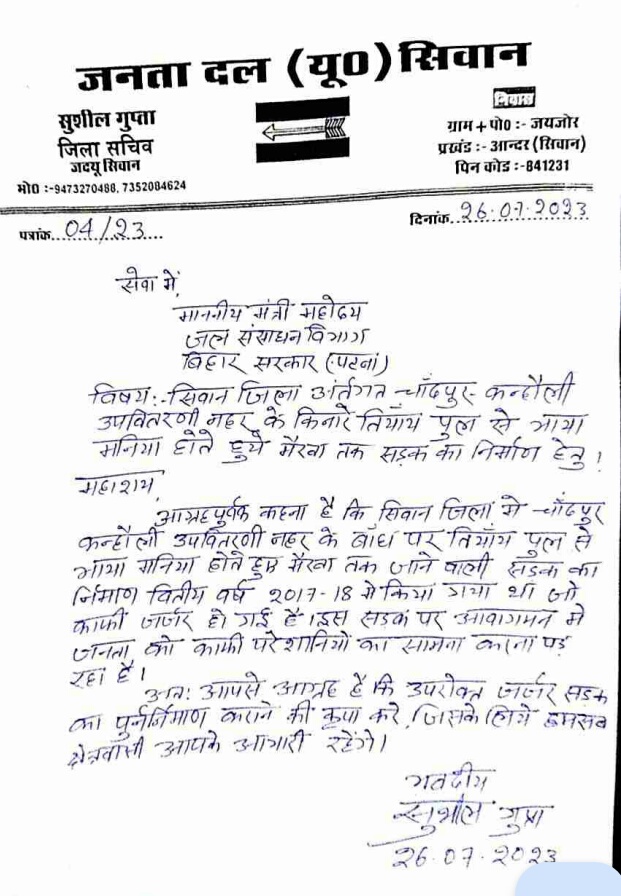 जनता दल (यू०) सिवान
सुशील गुप्ता
जिला सचिव
जदयू सिवान
मो० :-9473270488, 7352084624
निवास
ग्राम + पो० :- जयजोर
प्रखंड :- आन्दर (सिवान)
पिन कोड :-841231
पत्रांक. 04/23
दिनांक. 26.07.2023
सेवा में,
माननीय मंत्री महोदय
जल संसाधन विभाग
बिहार सरकार (पटना)
विषय:- सिवान जिला अंर्तगत चाँदपुर- कन्हौली
उपवितरणी नहर के किनारे तियाँय पुल से भाया
मनिया होते हुये भैरवा तक सड़क का निर्माण हेतु।
महाशय,
आग्रहपूर्वक कहना है कि सिवान जिला में चाँदपुर
कन्हौली उपवितरणी नहर के बाँध पर तियाँय पुल से
भाया मनिया होते हुए भैरवा तक जाने वाली सड़क का
र्निमाण वितीय वर्ष 2017-18 में किया गया था जो
काफी जर्जर हो गई है। इस सड़क पर आवागमन में
जनता को काफी परेशानियों का सामना करना पड़
रहा है।
अत: आपसे आग्रह है कि उपरोक्त जर्जर सड़क
का पुर्ननिमाण कराने की कृपा करें, जिसके लिये हमसब
क्षेत्रवासी आपके आभारी रहेंगे।
भवदीय
सुशील गुप्ता
26.07.2023